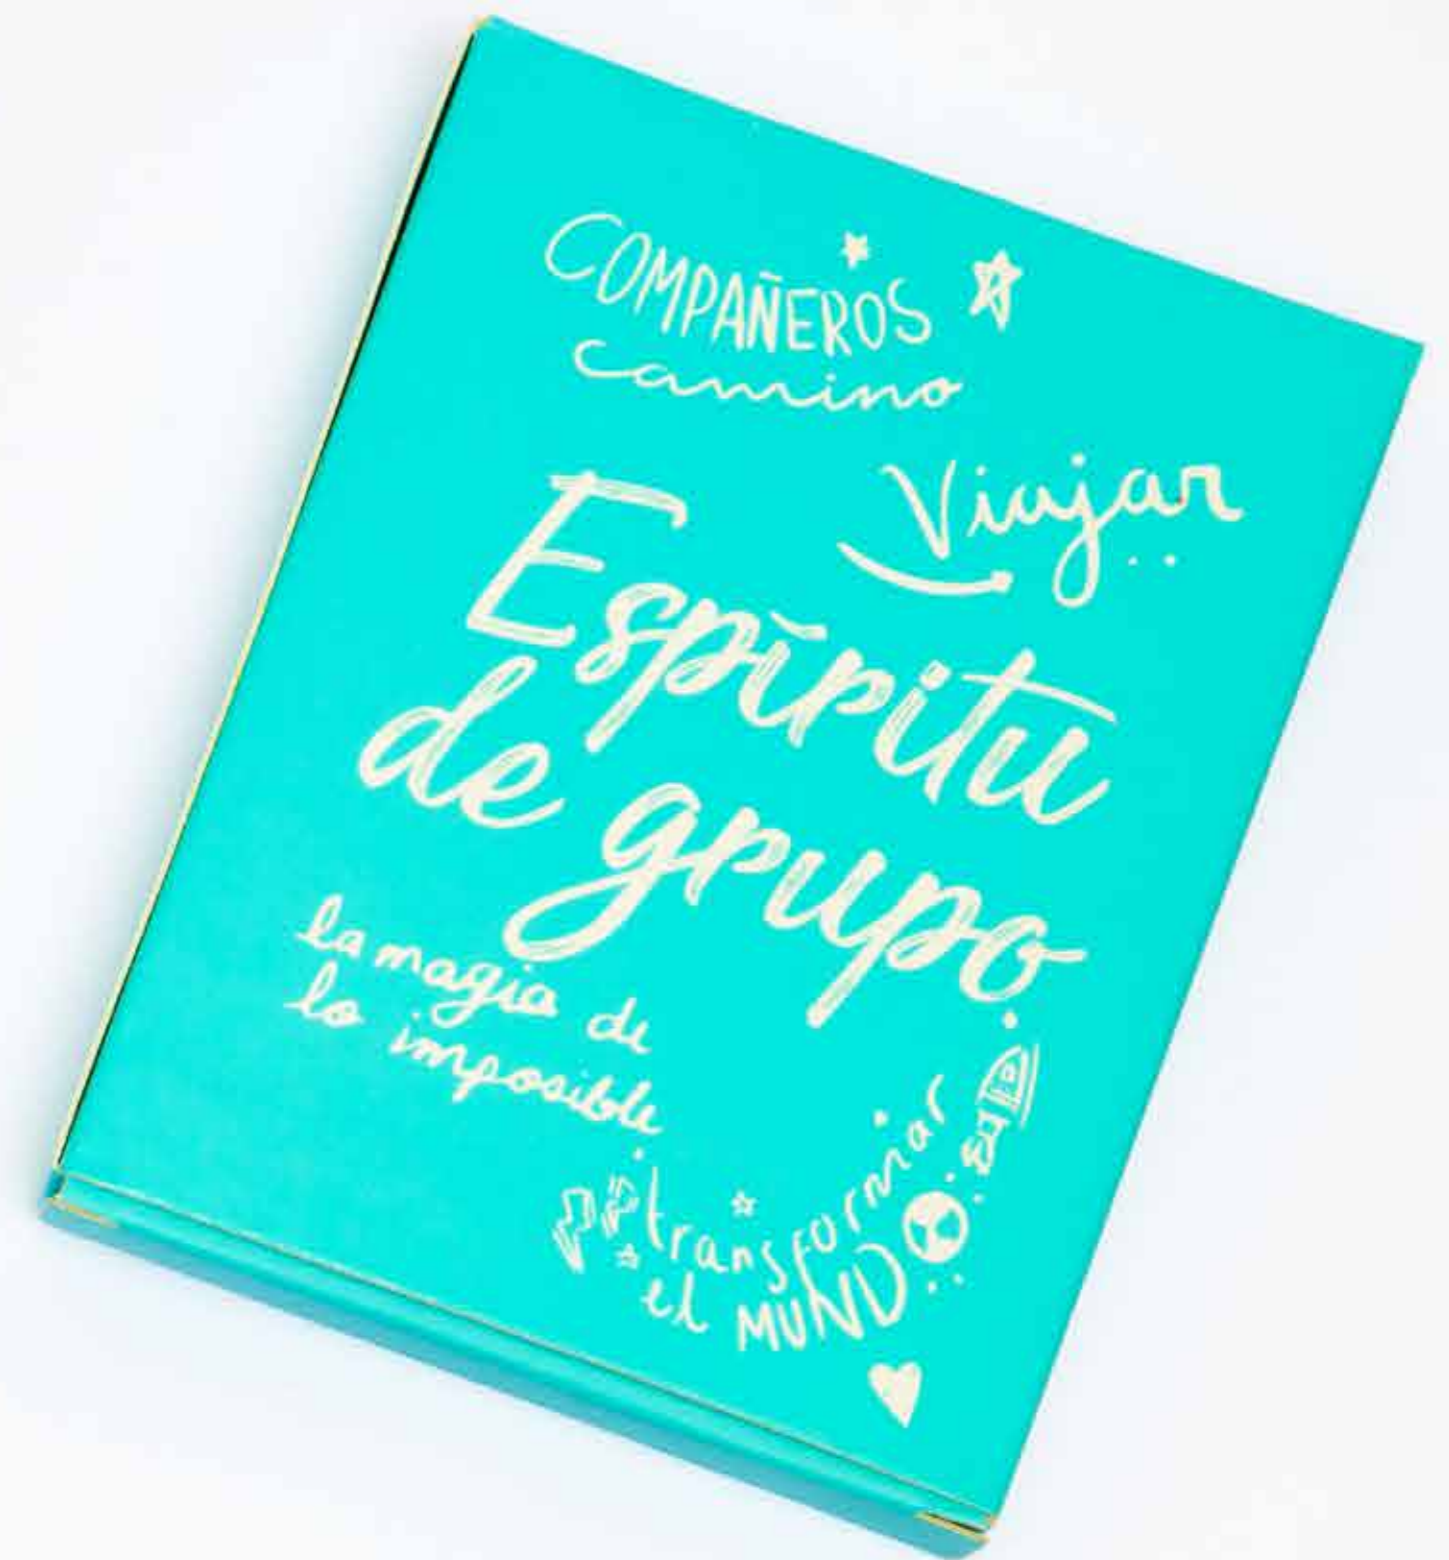 COMPAÑEROS
camino
Viajar
Espíritu
de grupo
la magia de
lo imposible
transformar
el MUNDO